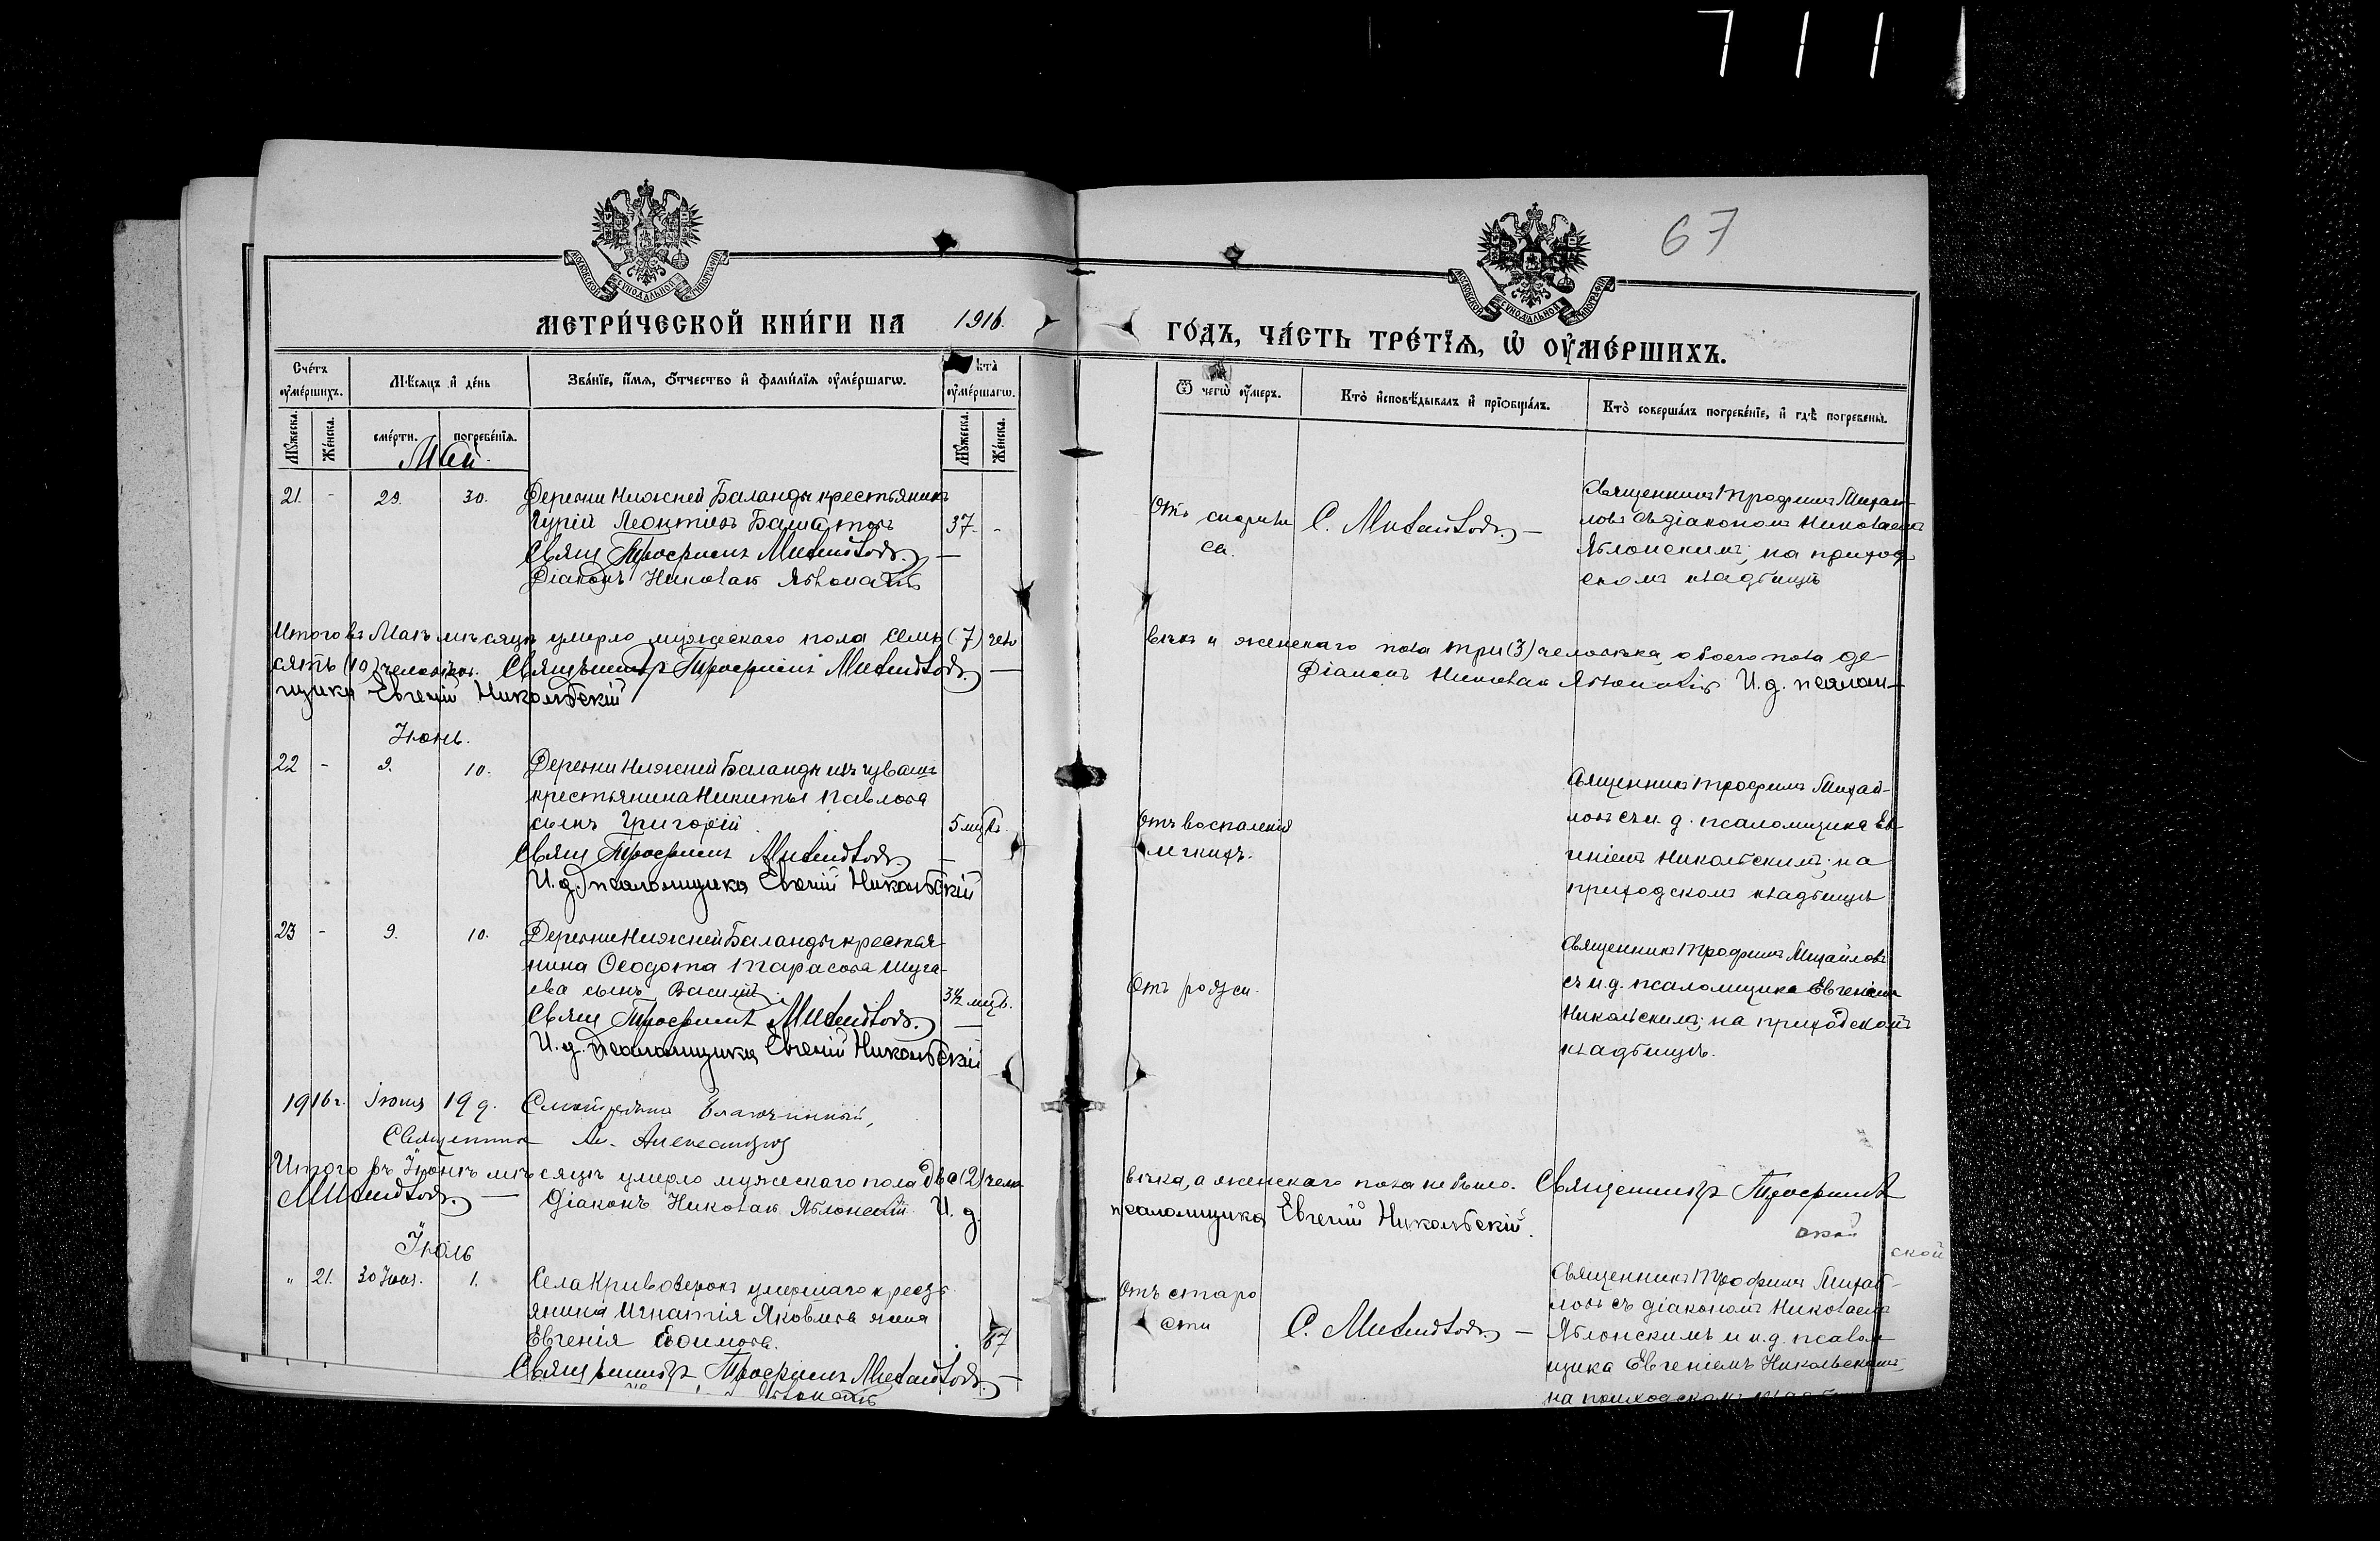 711
67
МОСКОВСКОЙ СУНОДАЛЬНОЙ ТИПОГРАФІИ
МОСКОВСКОЙ СУНОДАЛЬНОЙ ТИПОГРАФІИ
МЕТРИ́ЧЕСКОЙ КНИ́ГИ НА 1916.
ГО́ДЪ, ЧА́СТЬ ТРЕ́ТЇѦ, Ѡ ОУ҆МЕ́РШИХЪ.
Сче́тъ оу҆ме́ршихъ.
Мѣ́сяцъ и҆ де́нь
Зва́нїе, и҆́мя, ѻ҆́тчество и҆ фами́лїя оу҆ме́ршагѡ.
Лѣта̀ оу҆ме́ршагѡ.
Ѿ чегѡ̀ оу҆́меръ.
Кто̀ и҆сповѣ́дывалъ и҆ прїѡбща́лъ.
Кто̀ соверша́лъ погребе́нїе, и҆ гдѣ̀ погребены̀.
Мꙋ́жеска.
Же́нска.
сме́рти.
погребе́нїя.
Мꙋ́жеска.
Же́нска.
Май.
21. - 29. 30. Деревни Нижней Баланды крестьянинъ
Гурій Леонтіевъ 37. -
Свящ Трофимъ Михайловъ. —
Діаконъ Николай Яблонскій
Отъ
са.
С. Михайловъ. —
Священникъ Трофимъ Михай-
ловъ съ діакономъ Николаемъ
Яблонскимъ; на приход-
скомъ кладбищѣ
Итого въ Маѣ мѣсяцѣ умерло мужескаго пола семь (7) чело
вѣкъ и женскаго пола три (3) человѣка, обоего пола де-
сять (10) человѣкъ. Священникъ Трофимъ Михайловъ. —
Діаконъ Николай Яблонскій И. д. псалом-
щика Евгеній Никольскій
Іюнь.
22 - 9. 10. Деревни Нижней Баланды изъ чувашъ
крестьянина Никиты Павлова
сынъ Григорій 5 мцъ.
Свящ Трофимъ Михайловъ. —
И. д. псаломщика Евгеній Никольскій
Отъ воспаленія
легкихъ.
Священникъ Трофимъ Михай-
ловъ съ и. д. псаломщика Ев-
геніемъ Никольскимъ; на
приходскомъ кладбищѣ
23 - 9. 10. Деревни Нижней Баланды крестья-
нина Ѳеодота Тарасова Шуга-
ева сынъ Василій. 3½ мцъ.
Свящ Трофимъ Михайловъ. —
И. д. псаломщика Евгеній Никольскій
Отъ рожи.
Священникъ Трофимъ Михайловъ
съ и. д. псаломщика Евгеніемъ
Никольскимъ; на приходскомъ
кладбищѣ.
1916 г. Іюня 19 д. Благочинный,
Священникъ Александровъ
Итого въ Іюнѣ мѣсяцѣ умерло мужескаго пола два (2) чело
вѣка, а женскаго пола не было. Священникъ Трофимъ
Михайловъ. — Діаконъ Николай Яблонскій И. д.
псаломщика Евгеній Никольскій.
ской
Іюль
" 21. 30 Іюня. 1. Села Кривоозерокъ умершаго крест
янина Игнатія Яковлева жена
Евгенія Ефимова. 67
Священникъ Трофимъ Михайловъ. —
Яблонскій
Отъ старо
сти
С. Михайловъ. —
Священникъ Трофимъ Михай-
ловъ съ діакономъ Николаемъ
Яблонскимъ и и. д. псалом
щика Евгеніемъ Никольскимъ,
на приходскомъ кладб